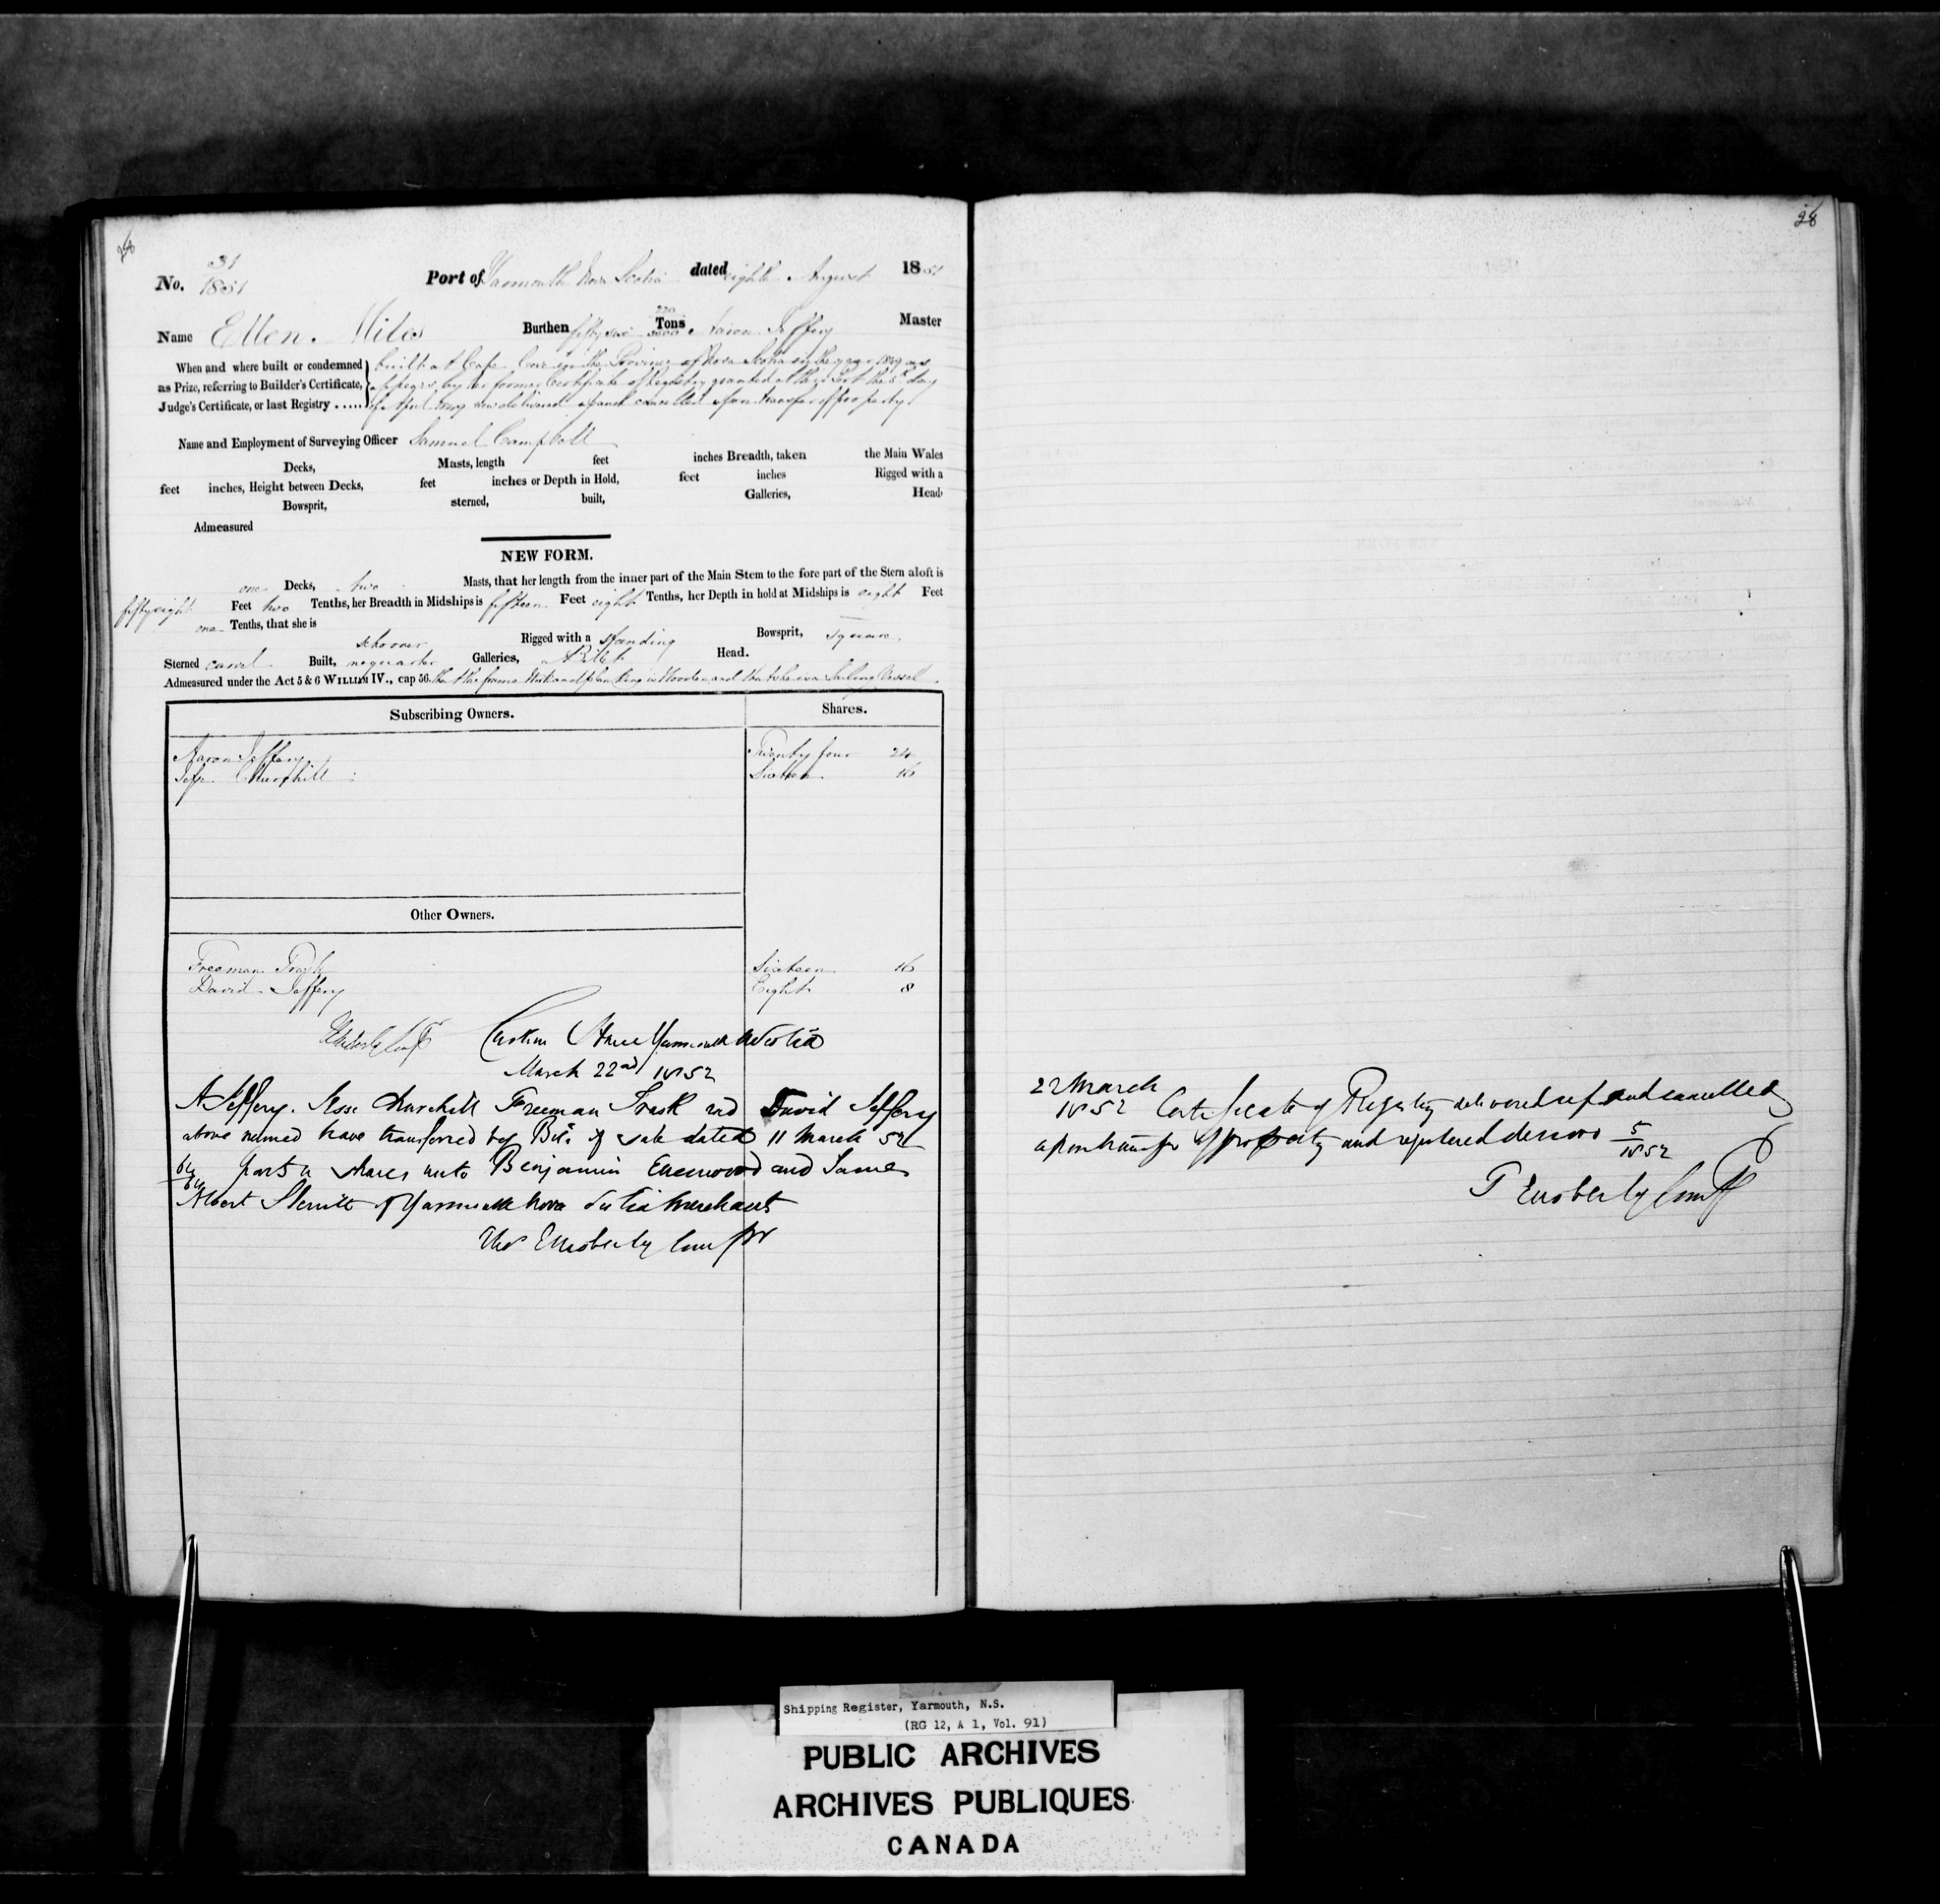 28
31
No. 1851 Port of Yarmouth Nova Scotia dated eighth August 1851
Name Ellen Miles Burthen fifty six 220/3500 Tons Aaron Jeffery Master
When and where built or condemned built at Cape Cove in the Province of Nova Scotia in the year 1849 as
as Prize, referring to Builder's Certificate, appears by her former Certificate of Registry granted at this Port the day
Judge's Certificate, or last Registry ..... of April now delivered up and cancelled upon transfer of property.
Name and Employment of Surveying Officer Samuel Campbell
Decks, Masts, length feet inches Breadth, taken the Main Wales
feet inches, Height between Decks, feet inches or Depth in Hold, feet inches Rigged with a
Bowsprit, sterned, built, Galleries, Head
Admeasured
NEW FORM.
one Decks, two Masts, that her length from the inner part of the Main Stem to the fore part of the Stern aloft is
fifty eight Feet two Tenths, her Breadth in Midships is fifteen Feet eight Tenths, her Depth in hold at Midships is eight Feet
one Tenths, that she is
schooner Rigged with a standing Bowsprit, square
Sterned carvel Built, no quarter Galleries, Head.
Admeasured under the Act 5 & 6 WILLIAM IV., cap 56. that the frame Work and planking is Wooden and that she is a Sailing Vessel.
Subscribing Owners. Shares.
Aaron Jeffery Twenty four 24
Jesse Churchill Sixteen 16
Other Owners.
Freeman Trask Sixteen 16
David Jeffery Eight 8
Custom House Yarmouth N Scotia
March 22nd 1852
A Jeffery. Jesse Churchill Freeman Trask and David Jeffery
above named have transferred by Bill of sale dated 11 March 52
64/64 parts or shares unto Benjamin and James
Albert of Yarmouth Nova Scotia Merchants
Thos E Moberly Compr
28
22 March
1852 Certificate of Registry delivered up and cancelled
upon transfer of property and registered de novo 5/1852
T E Moberly Compr
Shipping Register, Yarmouth, N.S.
(RG 12, A 1, Vol. 91)
PUBLIC ARCHIVES
ARCHIVES PUBLIQUES
CANADA